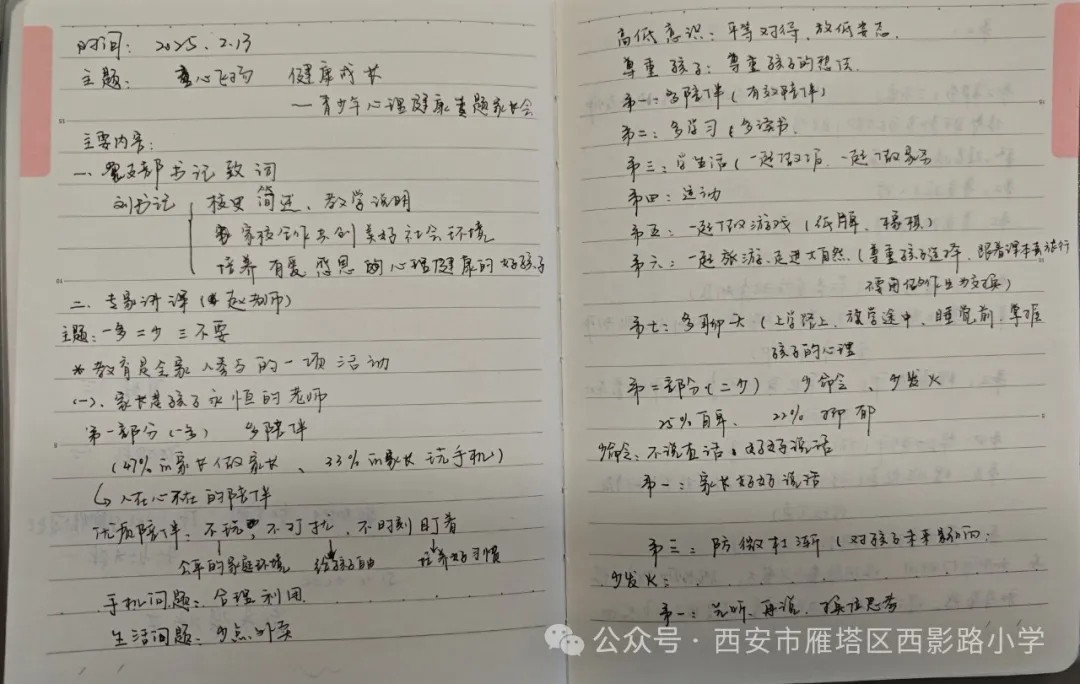 时间: 2025.2.13
主题: 童心飞扬 健康成长
—青少年心理健康专题家长会
主要内容:
一、党支部书记致词
刘书记 校史简述、教学说明
家校合作共创美好社会环境
培养有爱感恩的心理健康的好孩子
二、专家讲课(赵老师)
主题:一多二少三不要
*教育是全家人参与的一项活动
(一)、家长是孩子永恒的老师
第一部分(一多) 多陪伴
(47%的家长做家长、33%的家长玩手机)
↳人在心不在的陪伴
优质陪伴:不玩、不打扰、不时刻盯着
的家庭环境 给孩子自由 培养好习惯
手机问题:合理利用
生活问题:少点外卖
高低意识:平等对待、放低姿态
尊重孩子:尊重孩子的想法
第一:多陪伴(有效陪伴)
第二:多学习,多读书
第三:学生活(一起做饭、一起做家务
第四:运动
第五:一起做游戏(纸牌、棋)
第六:一起旅游、走进大自然(尊重孩子选择、跟着课本去旅行
不要用写作业为交换)
第七:多聊天(上学路上、放学途中、睡觉前、掌握
孩子的心理
第二部分(二少) 少命令、少发火
25%自卑、22%抑郁
少命令:不说直话,好好说话
第一:家长好好说话
第三:防微杜渐(对孩子未来影响:
少发火:
第一:先听、再说、换位思考
公众号·西安市雁塔区西影路小学